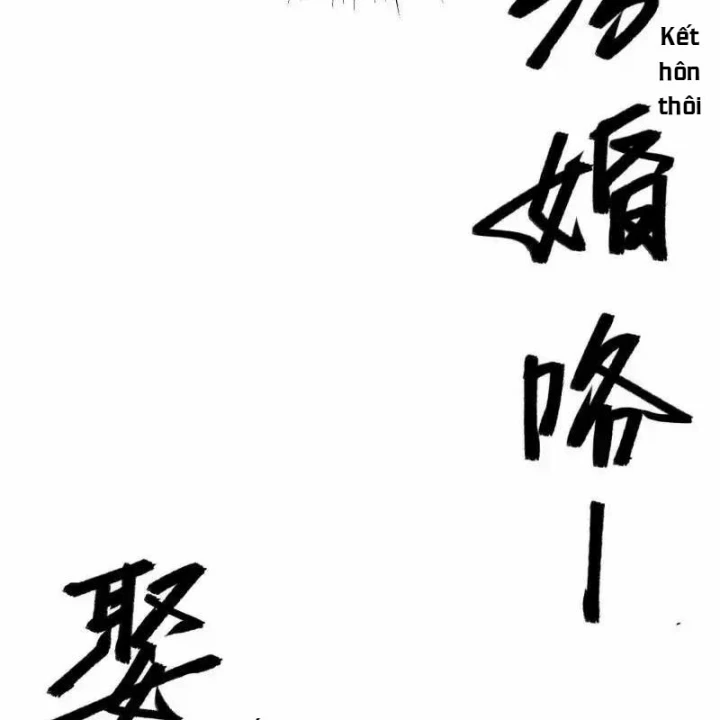 Kết
hôn
thôi
婚
咯
娶